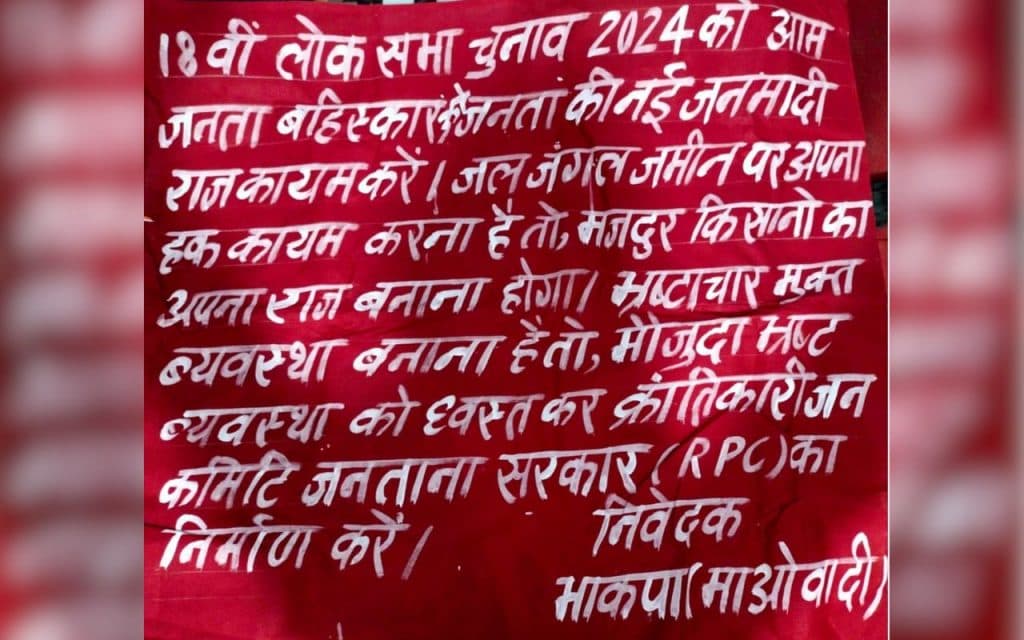 18वीं लोक सभा चुनाव 2024 को आम
जनता बहिस्कार करें जनता की नई जनमादी
राज कायम करें। जल जंगल जमीन पर अपना
हक कायम करना है तो, मजदुर किसानो का
अपना राज बनाना होगा। भ्रष्टाचार मुक्त
ब्यवस्था बनाना है तो, मौजुदा भ्रष्ट
ब्यवस्था को ध्वस्त कर क्रांतिकारी जन
कमिटि जनताना सरकार (RPC) का
निर्माण करें।
निवेदक
भाकपा (माओवादी)